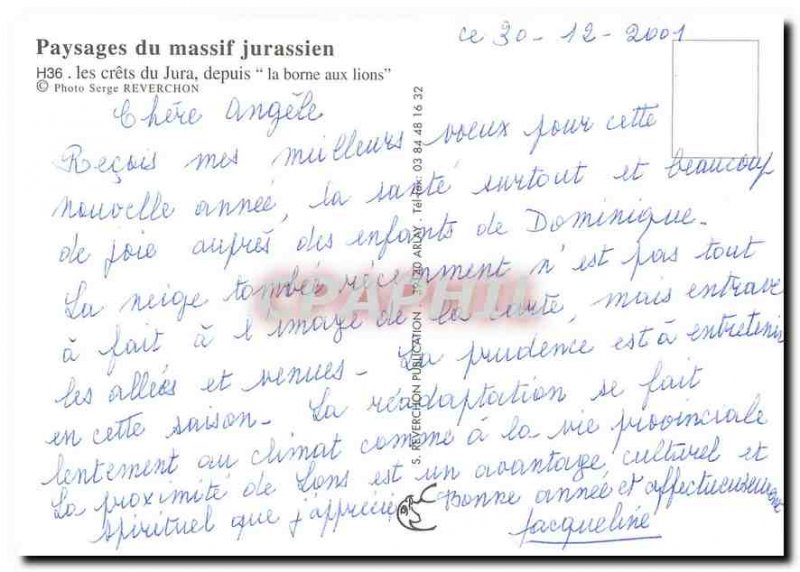 ce 30-12-2001
Paysages du massif jurassien
H36 . les crêts du Jura, depuis “ la borne aux lions”
© Photo Serge REVERCHON
Chère Angèle
Reçois mes meilleurs voeux pour cette
nouvelle année, la santé surtout et beaucoup
de joie auprès des enfants de Dominique.
La neige tombée récemment n'est pas tout
à fait à l'image de la carte, mais entrave
les allées et venues - La prudence est à entretenir
en cette saison - La réadaptation se fait
lentement au climat comme à la vie provinciale
La proximité de Lons est un avantage culturel et
spirituel que j'apprécie. Bonne année et affectueusement
Jacqueline
S. REVERCHON PUBLICATION . 39120 ARLAY . Tél-fax. 03 84 48 16 32
CPAPHIL